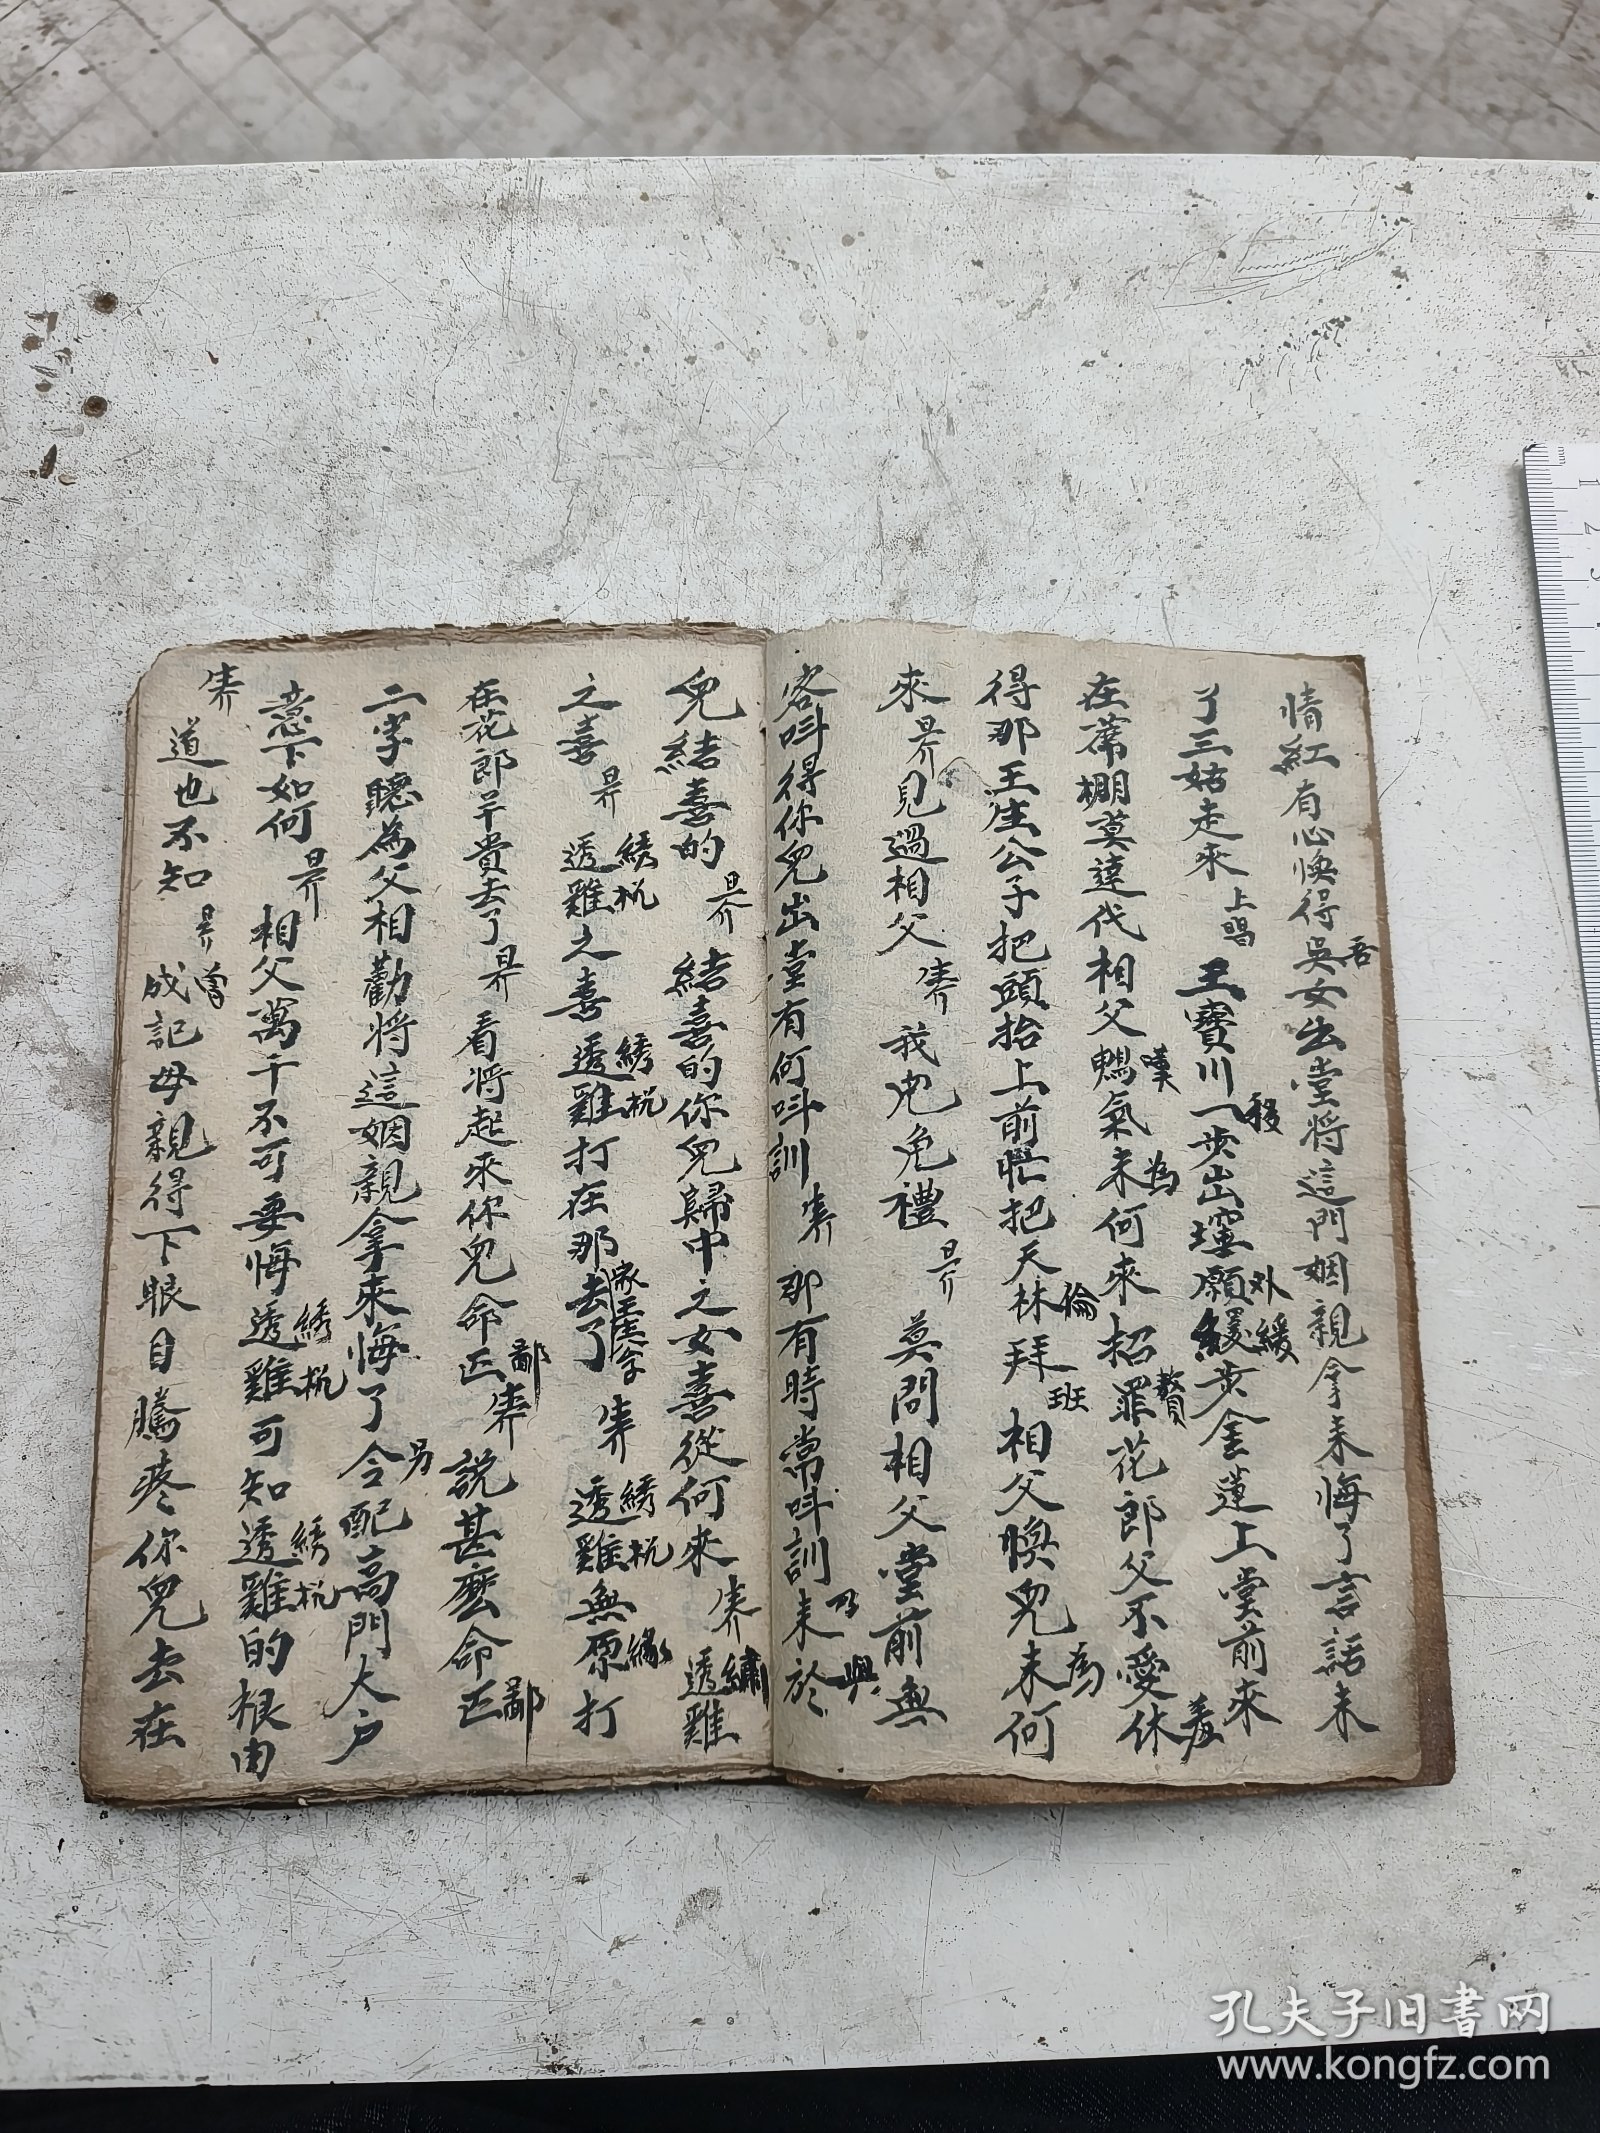 情紅有心喚得吳女出堂將這門姻親拿來悔了言話未
吾
了三姑走來上唱王寶川一步出堂願緩步金蓮上堂前來
移 外 緩
在蓆棚莫達代相父鴨氣未何來招罪花郎父不愛休
嘆 為 贅 羞
得那王生公子把頭抬上前忙把天林拜相父喚兒未何
倫 班 為
來昇見過相父 我兒免禮 昇 莫問相父堂前無
客呌得你兒出堂有何呌訓 那有時常呌訓未於
與
兒結喜的昇 結喜的你兒歸中之女喜從何來 透雞
繡
之喜昇透雞之喜透雞打在那去了 透雞無原打
綉杭 綉杭 家 綉杭 緣
在花郎平貴去了昇看將起來你兒命丕 說甚麽命丕
鄙 鄙
二字聽為父相勸將這姻親拿來悔了令配高門大户
另
意下如何昇相父萬千不可要悔透雞可知透雞的根由
綉杭 綉杭
道也不知昇成記母親得下眼目騰疼你兒去在
曾
孔夫子旧書网
www.kongfz.com
1
2
3